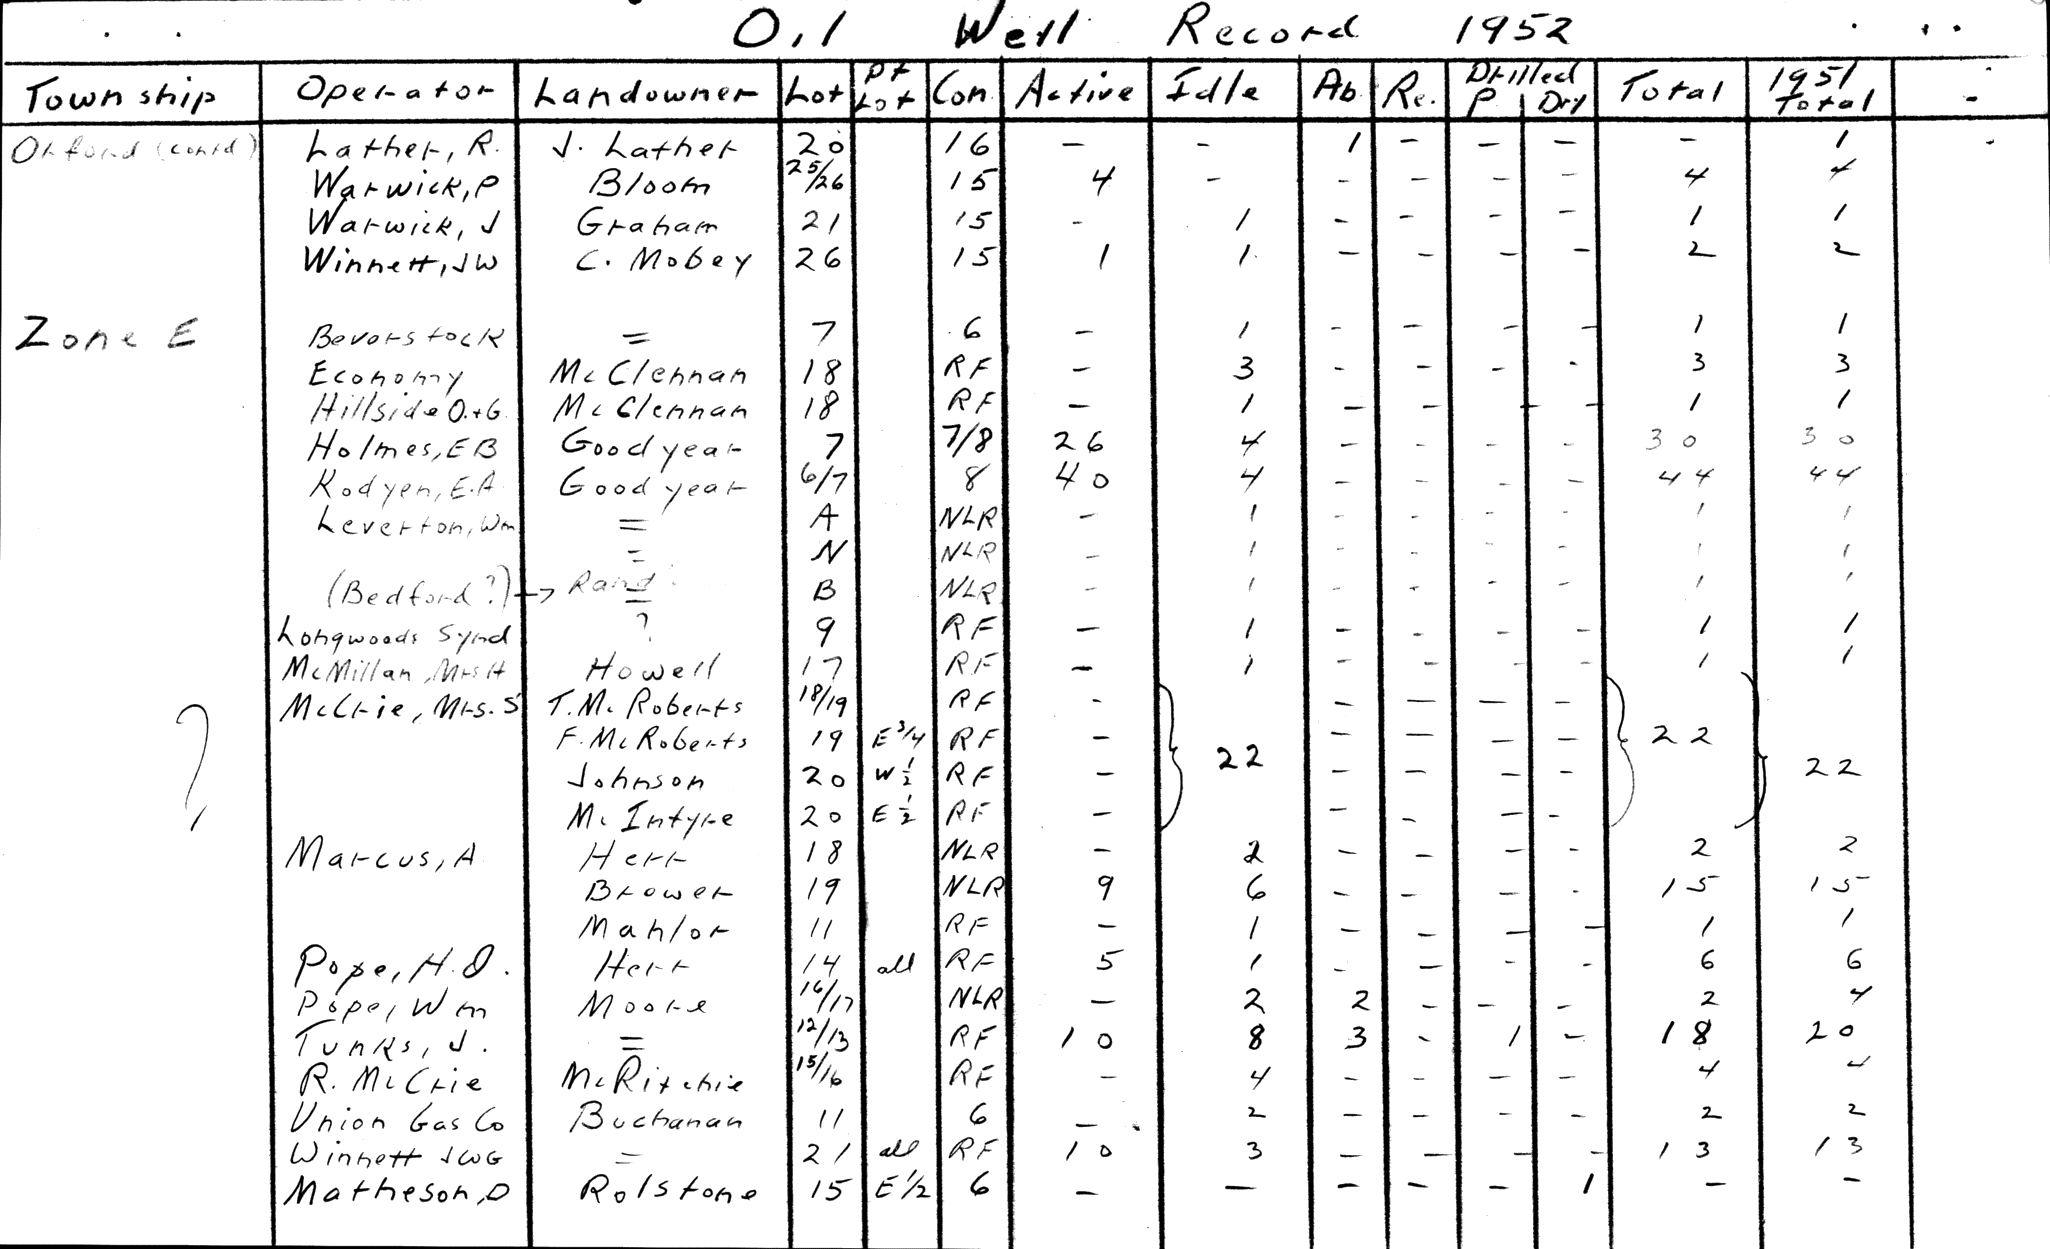 Oil Well Record 1952
Township Operator Landowner Lot Pt Lot Con. Active Idle Ab. Re. Drilled P Dry Total 1951 Total
Orford (cont'd) Lather, R. J. Lather 20 16 - - 1 - - - - 1
Warwick, P Bloom 25/26 15 4 - - - - - 4 4
Warwick, J Graham 21 15 - 1 - - - - 1 1
Winnett, JW C. Mobey 26 15 1 1 - - - - 2 2
Zone E Beverstock = 7 6 - 1 - - - - 1 1
Economy McClennan 18 RF - 3 - - - - 3 3
Hillside O.+G. McClennan 18 RF - 1 - - - - 1 1
Holmes, EB Goodyear 7 7/8 26 4 - - - - 30 30
Kodyen, E.A. Goodyear 6/7 8 40 4 - - - - 44 44
Leverton, Wm = A NLR - 1 - - - - 1 1
= N NLR - 1 - - - - 1 1
(Bedford ?) → Rand = B NLR - 1 - - - - 1 1
Longwoods Synd ? 9 RF - 1 - - - - 1 1
McMillan, Mrs H Howell 17 RF - 1 - - - - 1 1
McCrie, Mrs. S T. McRoberts 18/19 RF - - - - -
? F. McRoberts 19 E 3/4 RF - 22 - - - - 22 22
Johnson 20 W 1/2 RF - - - - -
McIntyre 20 E 1/2 RF - - - - -
Marcus, A Herr 18 NLR - 2 - - - - 2 2
Brower 19 NLR 9 6 - - - - 15 15
Mahlor 11 RF - 1 - - - - 1 1
Pope, H.O. Herr 14 all RF 5 1 - - - - 6 6
Pope, Wm Moore 16/17 NLR - 2 2 - - - 2 4
Tunks, J. = 12/13 RF 10 8 3 - 1 - 18 20
R. McCrie McRitchie 15/16 RF - 4 - - - - 4 4
Union Gas Co Buchanan 11 6 - 2 - - - - 2 2
Winnett JWG = 21 all RF 10 3 - - - - 13 13
Matheson, D Rolstone 15 E 1/2 6 - - - - - 1 - -